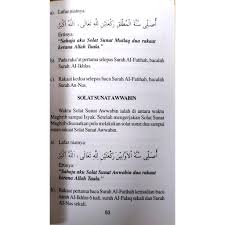 Lafaz niatnya:
أُصَلِّى سُنَّةَ الْمُطْلَقِ رَكْعَتَيْنِ لِلَّهِ تَعَالَى . اَللهُ اَكْبَرُ
Ertinya:
"Sahaja aku Solat Sunat Mutlaq dua rakaat
kerana Allah Taala."
Pada rakaat pertama selepas Surah Al-Fatihah, bacalah
Surah Al-Ikhlas.
Rakaat kedua selepas baca Surah Al-Fatihah, bacalah
Surah An-Nas.
SOLAT SUNAT AWWABIN
Waktu Solat Sunat Awwabin ialah di antara waktu
Maghrib sampai Isyak. Setelah mengerjakan Solat Sunat
melakukan solat sunat dua
Solat Sunat Awwabin.
Lafaz niatnya:
أُصَلِّى سُنَّةَ الْاَوَّابِيْنَ رَكْعَتَيْنِ لِلَّهِ تَعَالَى . اَللهُ اَكْبَرُ
Ertinya:
"Sahaja aku Solat Sunat Awwabin dua rakaat
kerana Allah Taala."
Rakaat pertama baca Surah Al-Fatihah kemudian baca
Al-Ikhlas 6 kali, surah Al-Falaq sekali dan Surah
An-Nas sekali.
93